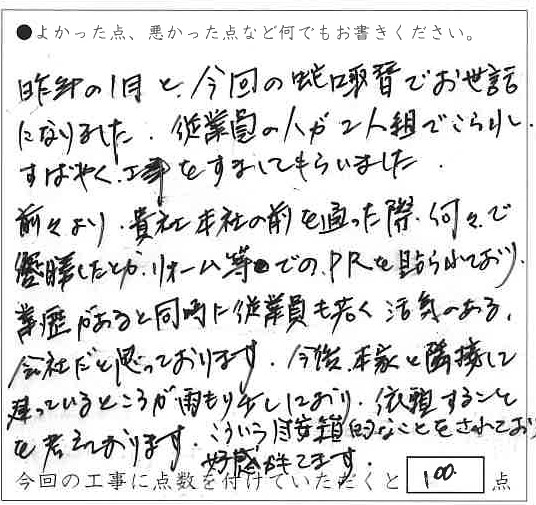 ●よかった点、悪かった点など何でもお書きください。
昨年の1月と、今回の蛇口取替でお世話
になりました．従業員の人が2人組でこられ、
すばやく、工事をすましてもらいました．
前々より、貴社本社の前を通った際、何々で
優勝したとか、リホーム等での、PRを貼られており、
業歴があると同時に従業員も若く活気のある、
会社だと思っております．今後、本家と隣接して
建っているところが雨もり少ししており、依頼すること
を考えております．こういう
的なことをされており
好感がもてます．
今回の工事に点数を付けていただくと 100 点